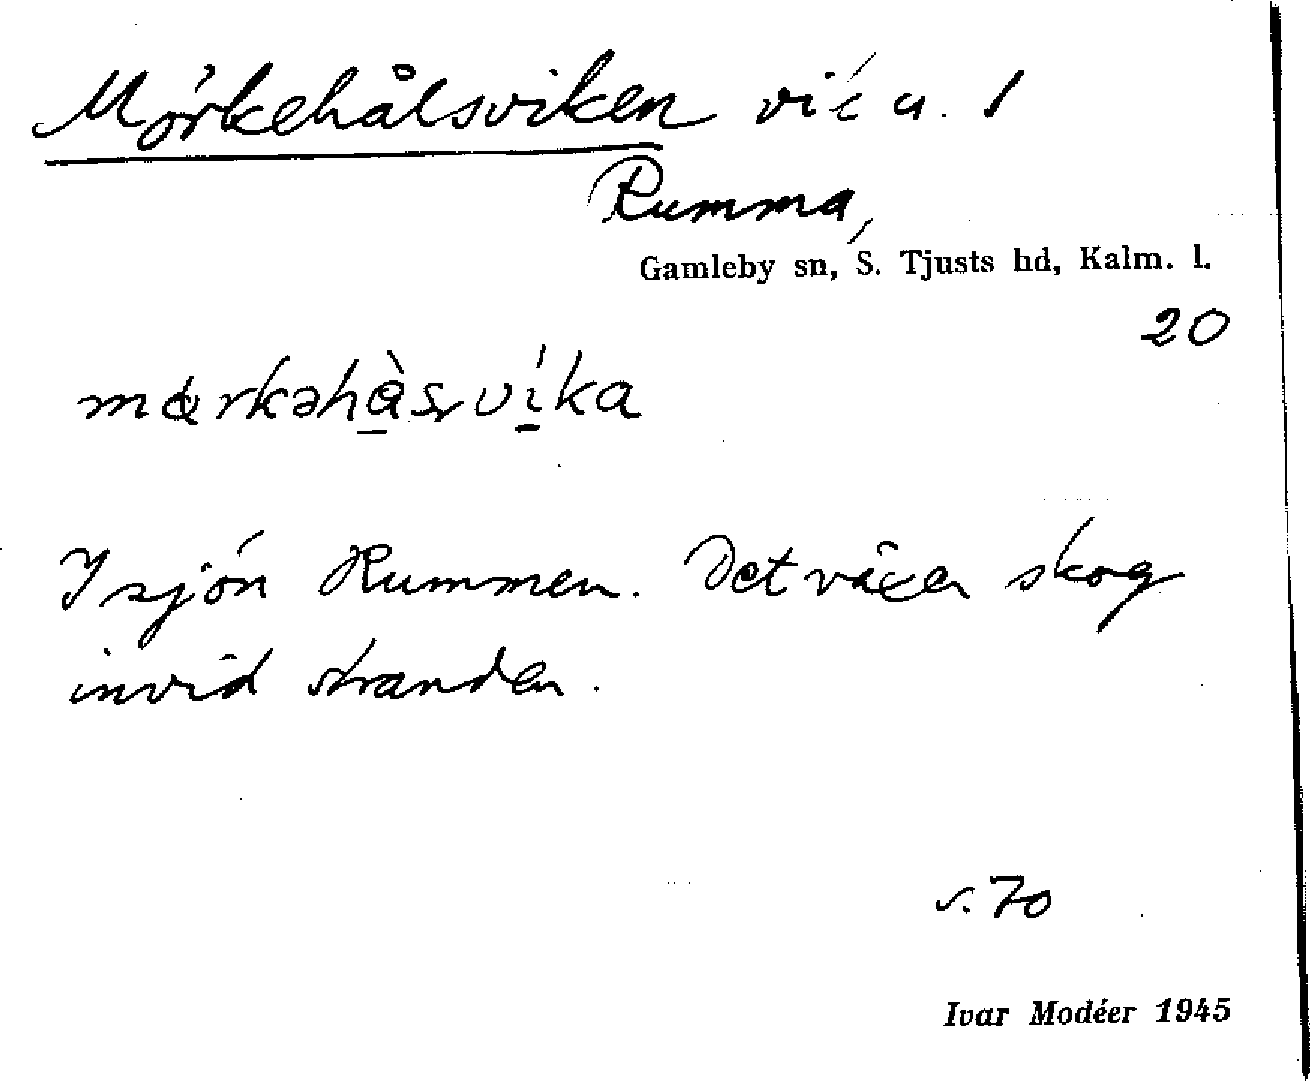 Mörkehålsviken vik u. 1
Rumma,
Gamleby sn, S. Tjusts hd, Kalm. l.
20
I sjön Rummen. Det växer skog
invid stranden.
s. 70
Ivar Modéer 1945